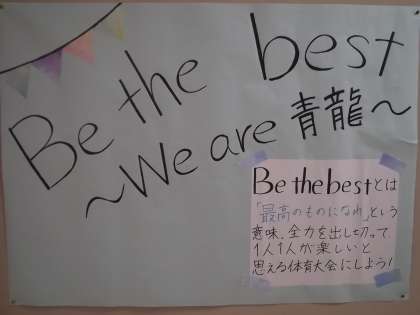 Be the best
〜We are 青龍〜
Be the bestとは
「最高のものになれ」という
意味、全力を出し切って
1人1人が楽しいと
思える体育大会にしよう!